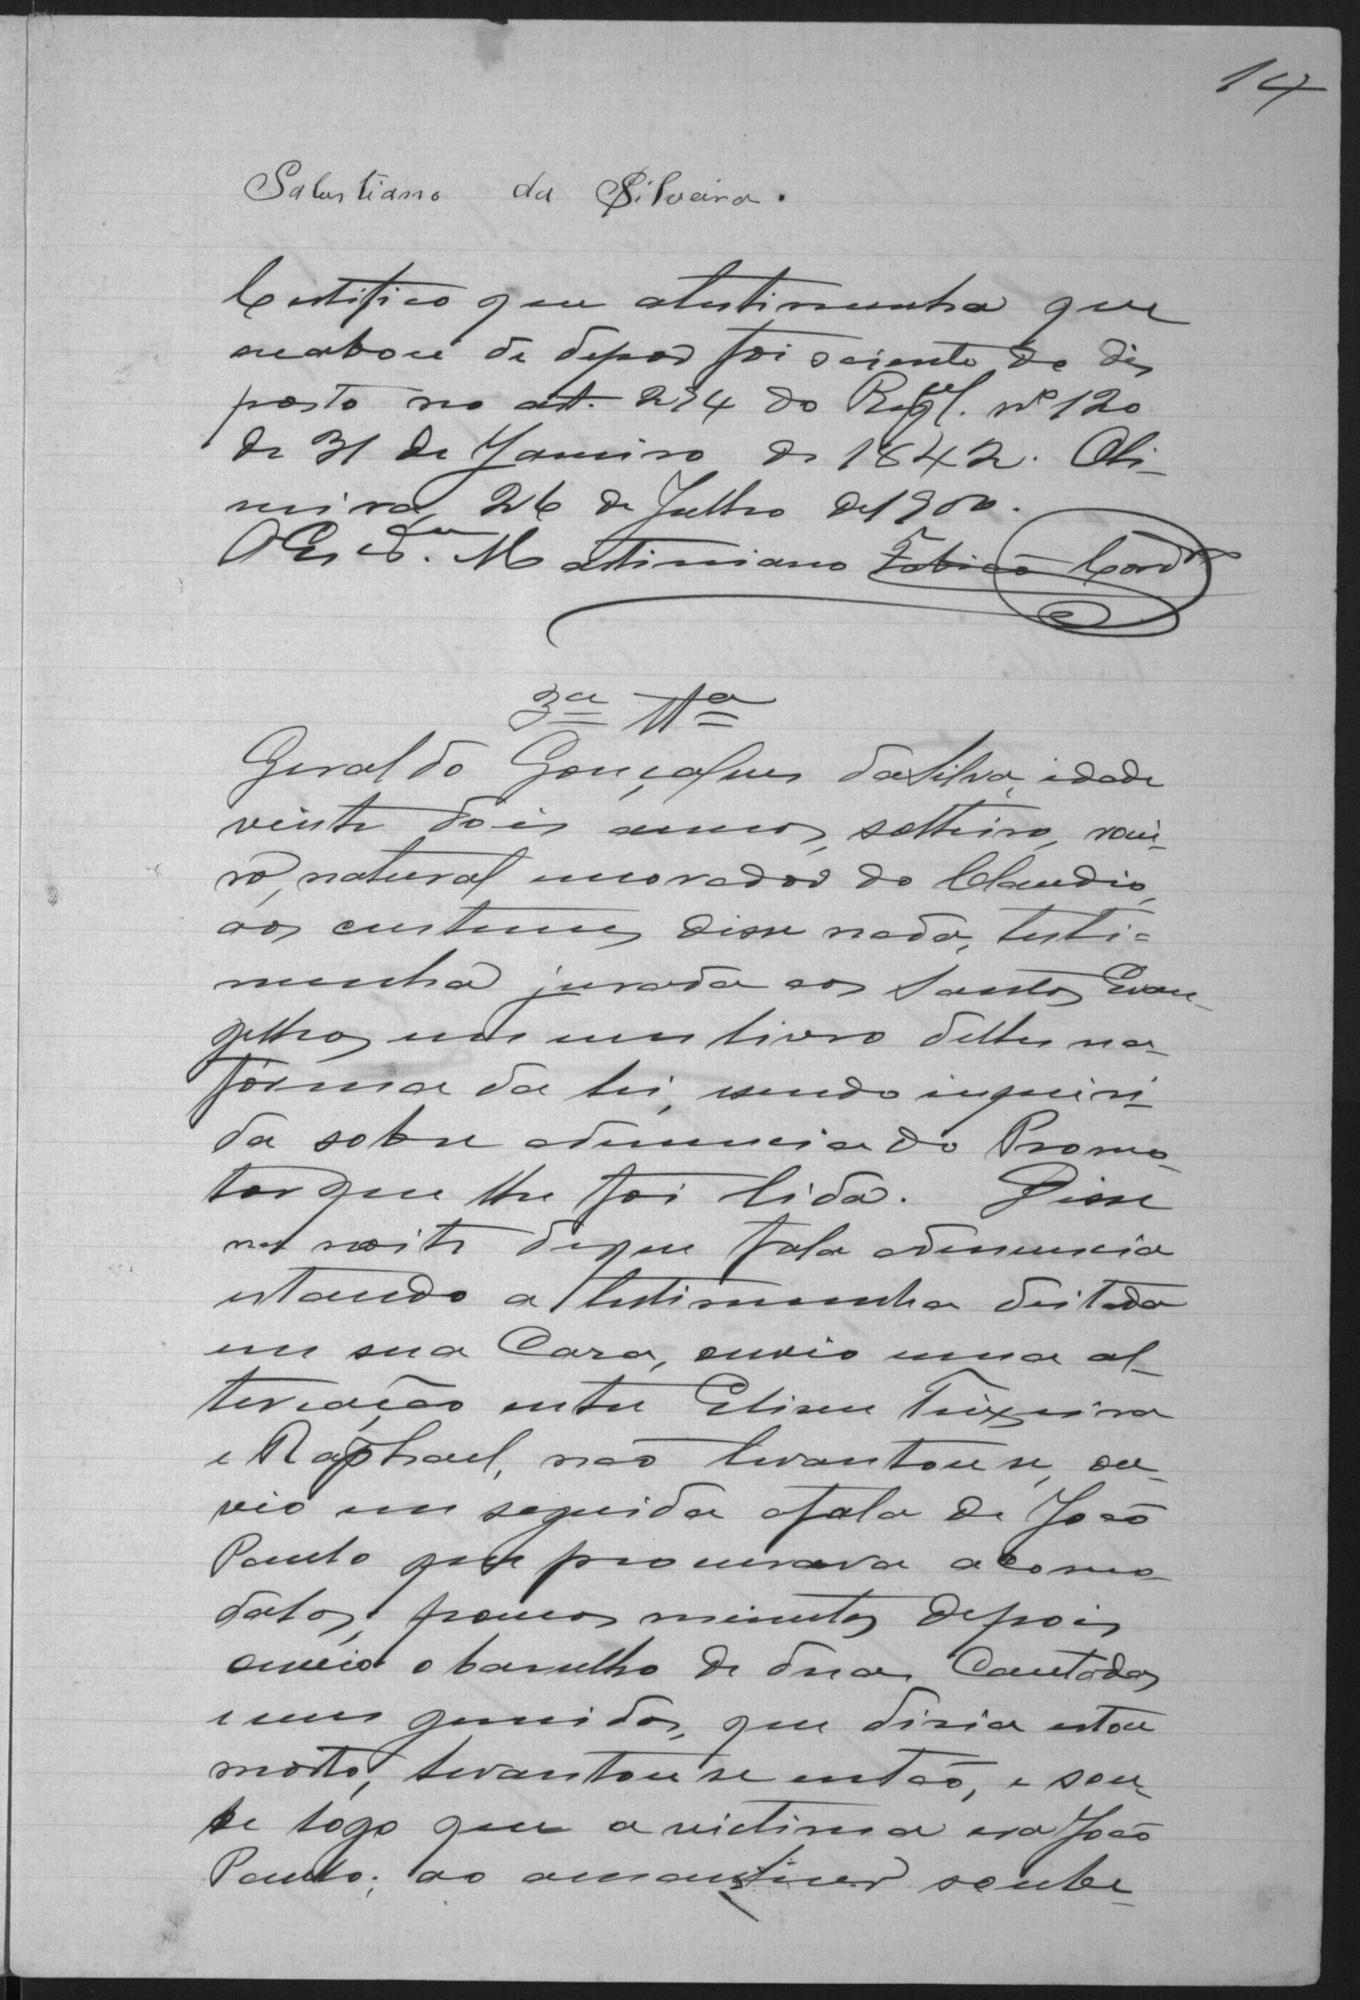 14
Salustiano da Silveira.
Certifico que atestimunha que
acabou de depor foi sciente do dis
posto no art. 294 do Regul. nº 120
de 31 de Janeiro de 1842. Oli-
veira, 26 de Julho de 1900.
O Escrdm. Martiniano
3ª Ttª
Geraldo Gonçalves da Silva, idade
vinte dois annos, solteiro,
natural morador do Claudio,
aos custumes disse nada, testi=
munha jurada aos Santos Evan-
gelhos em um livro delles na
forma da lei, esendo inqueri-
da sobre adenuncia do Promo-
tor que lhe foi lida. Disse
na noite deque fala adenuncia
estando a testimunha deitada
em sua Casa, ouvio uma al-
tercação entre Eliseu Teixeira
e Raphael, não levantou se, ou-
vio em seguida afala de João
Paulo que procurava acomo-
dalos, poucos minutos depois
ouvio o barulho de duas Cacetadas
e uns gemidos, que disia estou
morto, levantou se então, e sou-
be logo que a victima era João
Paulo; ao amanhecer soube-